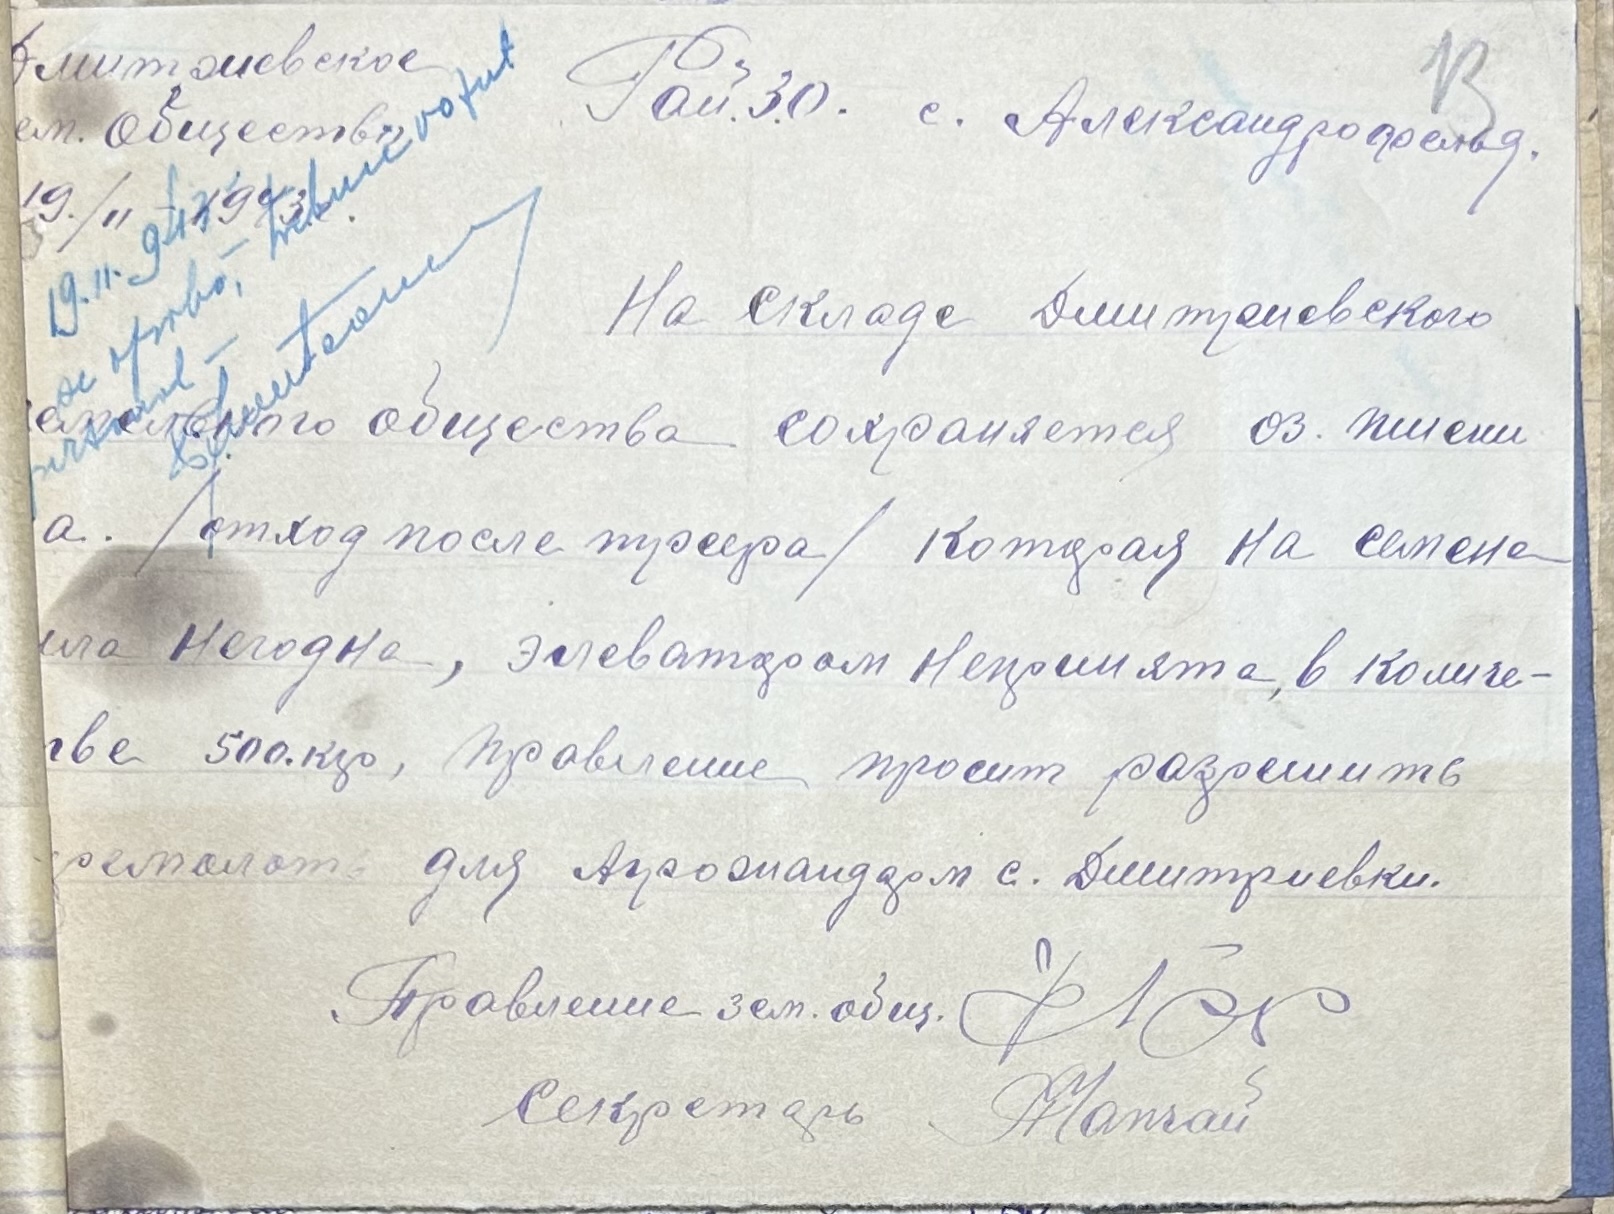 Дмитриевское
зем. Общество
19./II 1943г.
Рай.З.О. с. Александрофельд.
13
19.II.943
На складе Дмитриевского
земельного общества сохраняется оз. пшени
ца. /отход после триера/ Которая на семена
была негодна, элеватором непринята, в количе-
тве 500.кгр, Правление просит разрешить
ремолоть для Агрожандарм с. Дмитриевки.
Правление зем. общ.
Секретарь